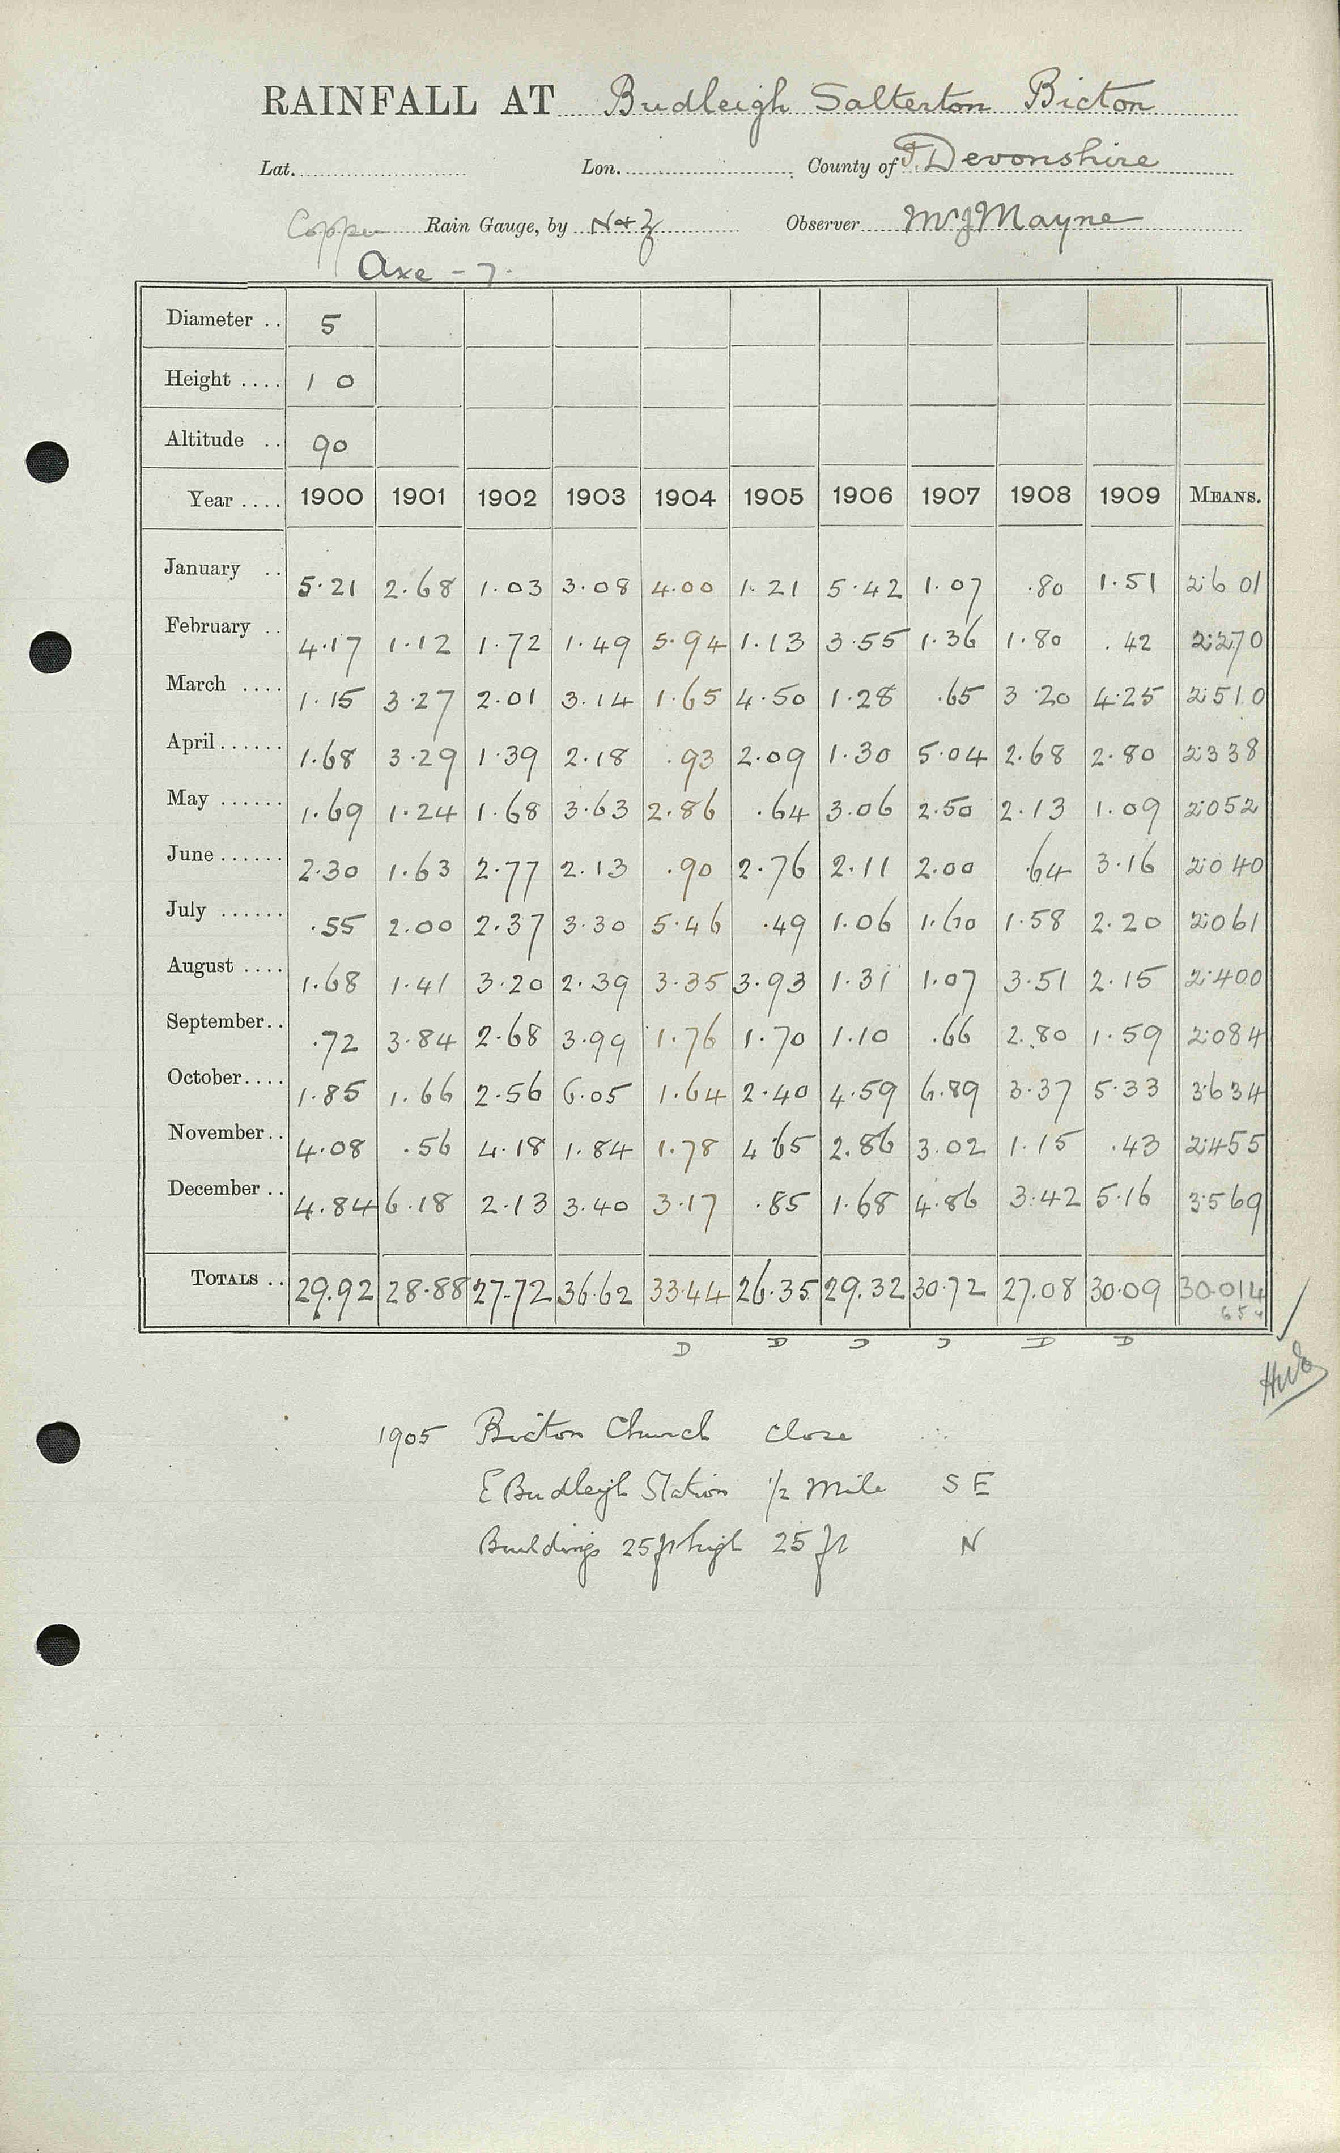 RAINFALL AT Budleigh Salterton Bicton
Lat. Lon. County of Devonshire
Copper Rain Gauge, by N & Z Observer Mr J Mayne
Axe - 7.
Diameter .. 5
Height .... 1 0
Altitude .. 90
Year .... 1900 1901 1902 1903 1904 1905 1906 1907 1908 1909 MEANS.
January .. 5.21 2.68 1.03 3.08 4.00 1.21 5.42 1.07 .80 1.51 2.601
February .. 4.17 1.12 1.72 1.49 5.94 1.13 3.55 1.36 1.80 .42 2.270
March .... 1.15 3.27 2.01 3.14 1.65 4.50 1.28 .65 3.20 4.25 2.510
April ...... 1.68 3.29 1.39 2.18 .93 2.09 1.30 5.04 2.68 2.80 2.338
May ...... 1.69 1.24 1.68 3.63 2.86 .64 3.06 2.50 2.13 1.09 2.052
June ...... 2.30 1.63 2.77 2.13 .90 2.76 2.11 2.00 .64 3.16 2.040
July ...... .55 2.00 2.37 3.30 5.46 .49 1.06 1.60 1.58 2.20 2.061
August .... 1.68 1.41 3.20 2.39 3.35 3.93 1.31 1.07 3.51 2.15 2.400
September.. .72 3.84 2.68 3.99 1.76 1.70 1.10 .66 2.80 1.59 2.084
October.... 1.85 1.66 2.56 6.05 1.64 2.40 4.59 6.89 3.37 5.33 3.634
November.. 4.08 .56 4.18 1.84 1.78 4.65 2.86 3.02 1.15 .43 2.455
December .. 4.84 6.18 2.13 3.40 3.17 .85 1.68 4.86 3.42 5.16 3.569
TOTALS .. 29.92 28.88 27.72 36.62 33.44 26.35 29.32 30.72 27.08 30.09 30.014
D D D D D D
1905 Bicton Church close
E Budleigh Station 1/2 mile S E
Buildings 25 ft high 25 ft N